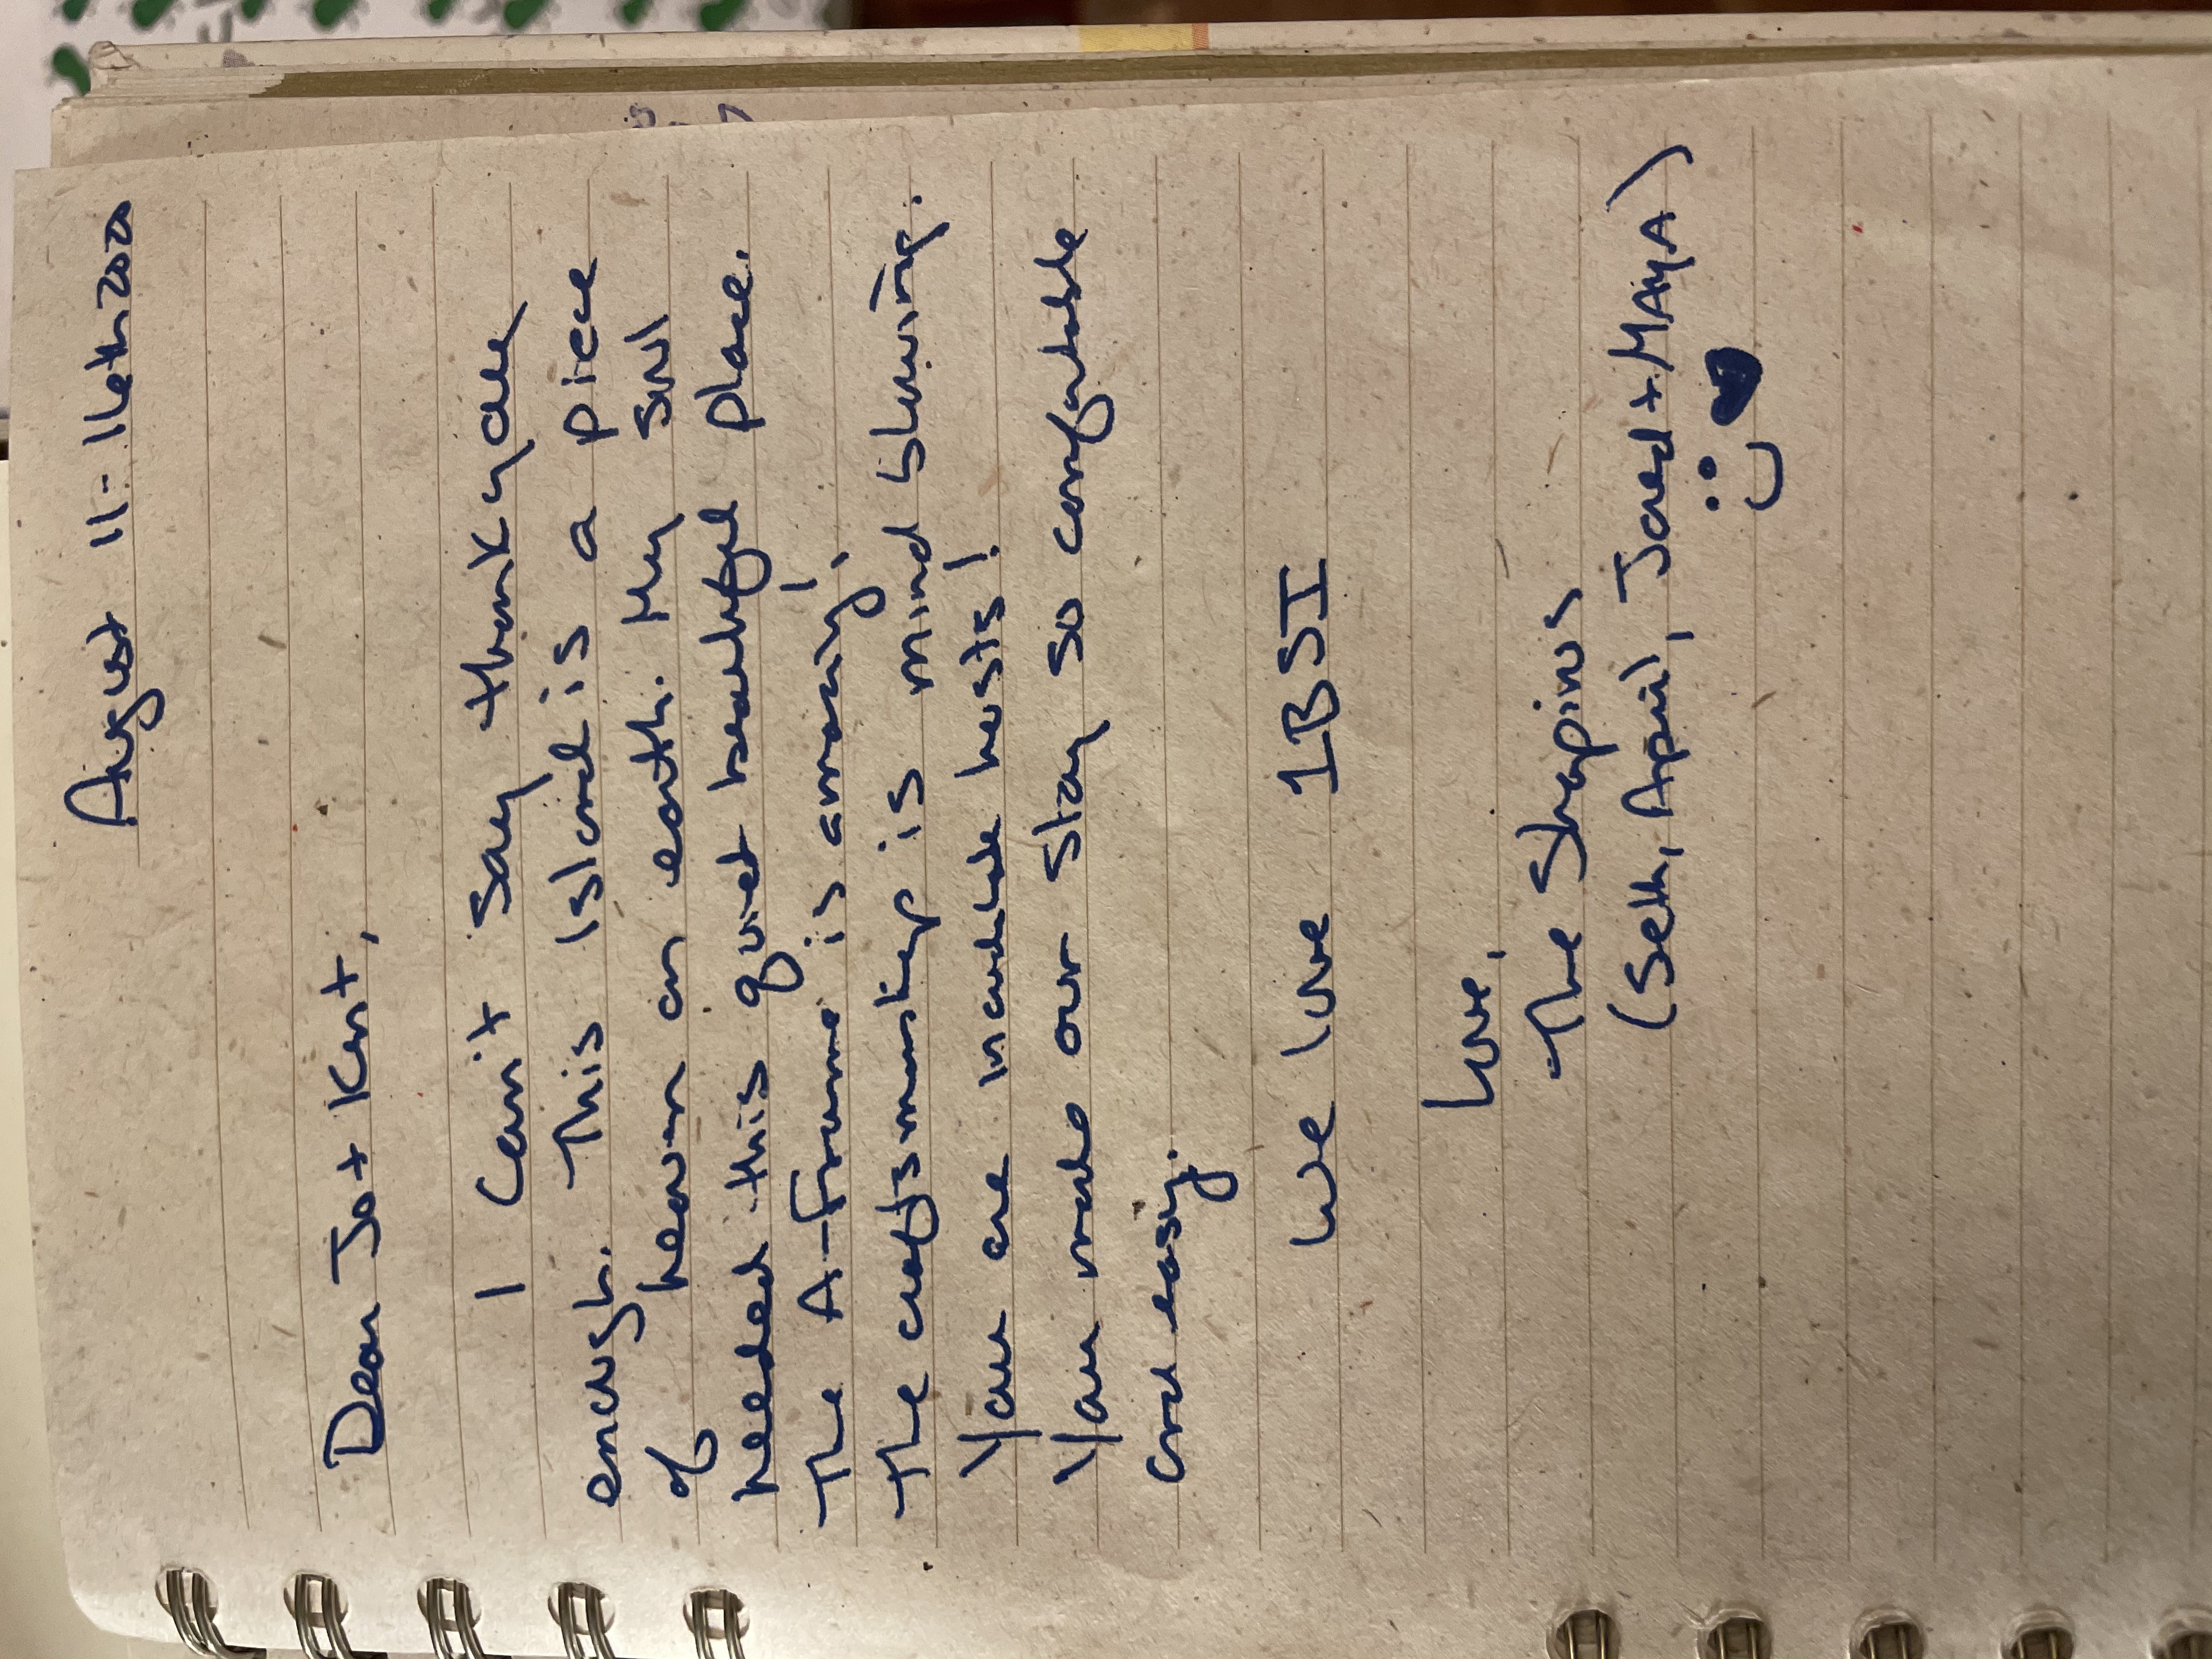 August 11-16th 2020
Dear Jo + Kent,
I can't say thank you
enough. This island is a piece
of heaven on earth. My soul
needed this quiet beautiful place.
The A-Frame is amazing!
The craftsmanship is mind blowing.
You are incredible hosts!
You made our stay so comfortable
and easy.
We love IBSI
Love,
The Shapiros
(Seth, April, Jared + MAyA)